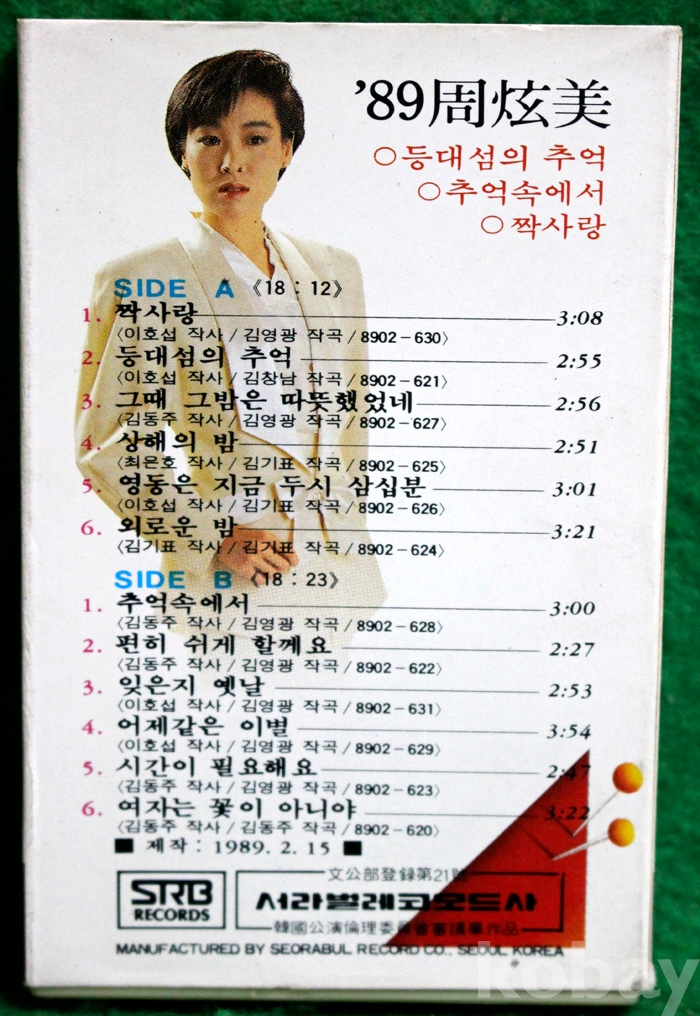 '89周炫美
○등대섬의 추억
○추억속에서
○짝사랑
SIDE A 《18 : 12》
1. 짝사랑 3:08
〈이호섭 작사 / 김영광 작곡 / 8902-630〉
2. 등대섬의 추억 2:55
〈이호섭 작사 / 김창남 작곡 / 8902-621〉
3. 그때 그밤은 따뜻했었네 2:56
〈김동주 작사 / 김영광 작곡 / 8902-627〉
4. 상해의 밤 2:51
〈최은호 작사 / 김기표 작곡 / 8902-625〉
5. 영동은 지금 두시 삼십분 3:01
〈이호섭 작사 / 김기표 작곡 / 8902-626〉
6. 외로운 밤 3:21
〈김기표 작사 / 김기표 작곡 / 8902-624〉
SIDE B 《18 : 23》
1. 추억속에서 3:00
〈김동주 작사 / 김영광 작곡 / 8902-628〉
2. 편히 쉬게 할께요 2:27
〈김동주 작사 / 김영광 작곡 / 8902-622〉
3. 잊은지 옛날 2:53
〈이호섭 작사 / 김영광 작곡 / 8902-631〉
4. 어제같은 이별 3:54
〈이호섭 작사 / 김영광 작곡 / 8902-629〉
5. 시간이 필요해요 2:47
〈김동주 작사 / 김영광 작곡 / 8902-623〉
6. 여자는 꽃이 아니야 3:22
〈김동주 작사 / 김동주 작곡 / 8902-620〉
■ 제작 : 1989. 2. 15 ■
文公部登録第21號
SRB RECORDS
서라벌레코오드사
韓國公演倫理委員會審議畢作品
MANUFACTURED BY SEORABUL RECORD CO., SEOUL KOREA
kobay